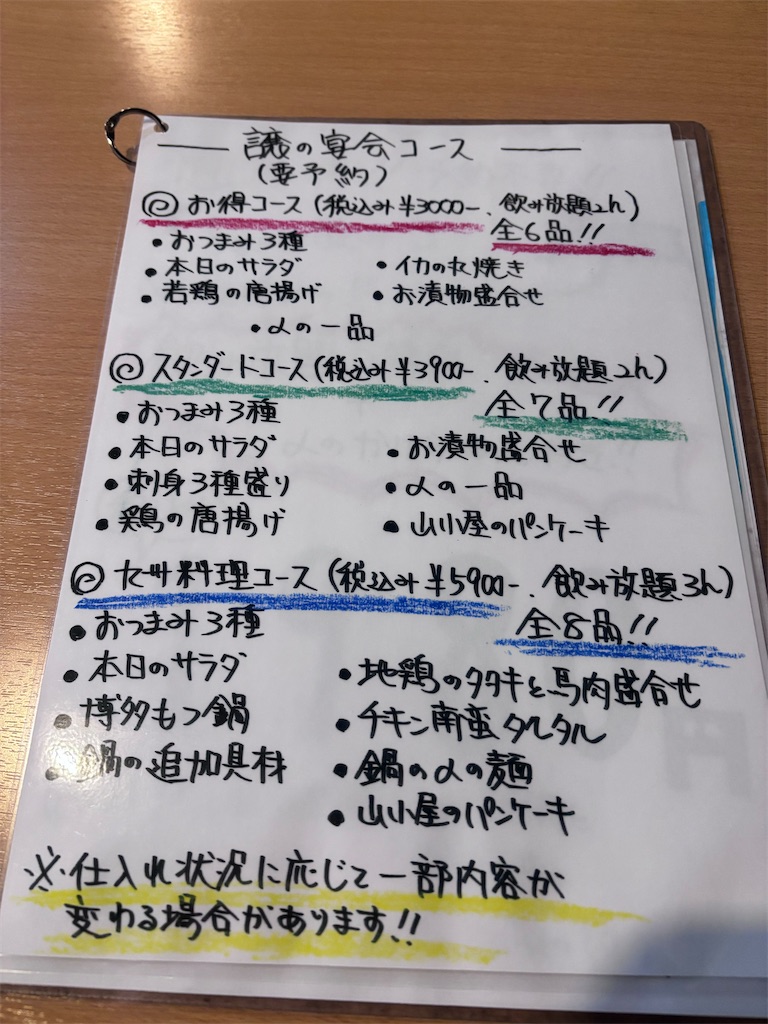 譲の宴会コース
(要予約)
◎ お得コース (税込み¥3000-、飲み放題2h)
全6品!!
・おつまみ3種
・本日のサラダ ・イカの丸焼き
・若鶏の唐揚げ ・お漬物盛合せ
・〆の一品
◎ スタンダードコース (税込み¥3900-、飲み放題2h)
全7品!!
・おつまみ3種
・本日のサラダ ・お漬物盛合せ
・刺身3種盛り ・〆の一品
・鶏の唐揚げ ・山小屋のパンケーキ
◎ 九州料理コース (税込み¥5900-、飲み放題3h)
全8品!!
・おつまみ3種
・本日のサラダ ・地鶏のタタキと馬肉盛合せ
・博多もつ鍋 ・チキン南蛮タルタル
・鍋の追加具材 ・鍋の〆の麺
・山小屋のパンケーキ
※仕入れ状況に応じて一部内容が
変わる場合があります!!